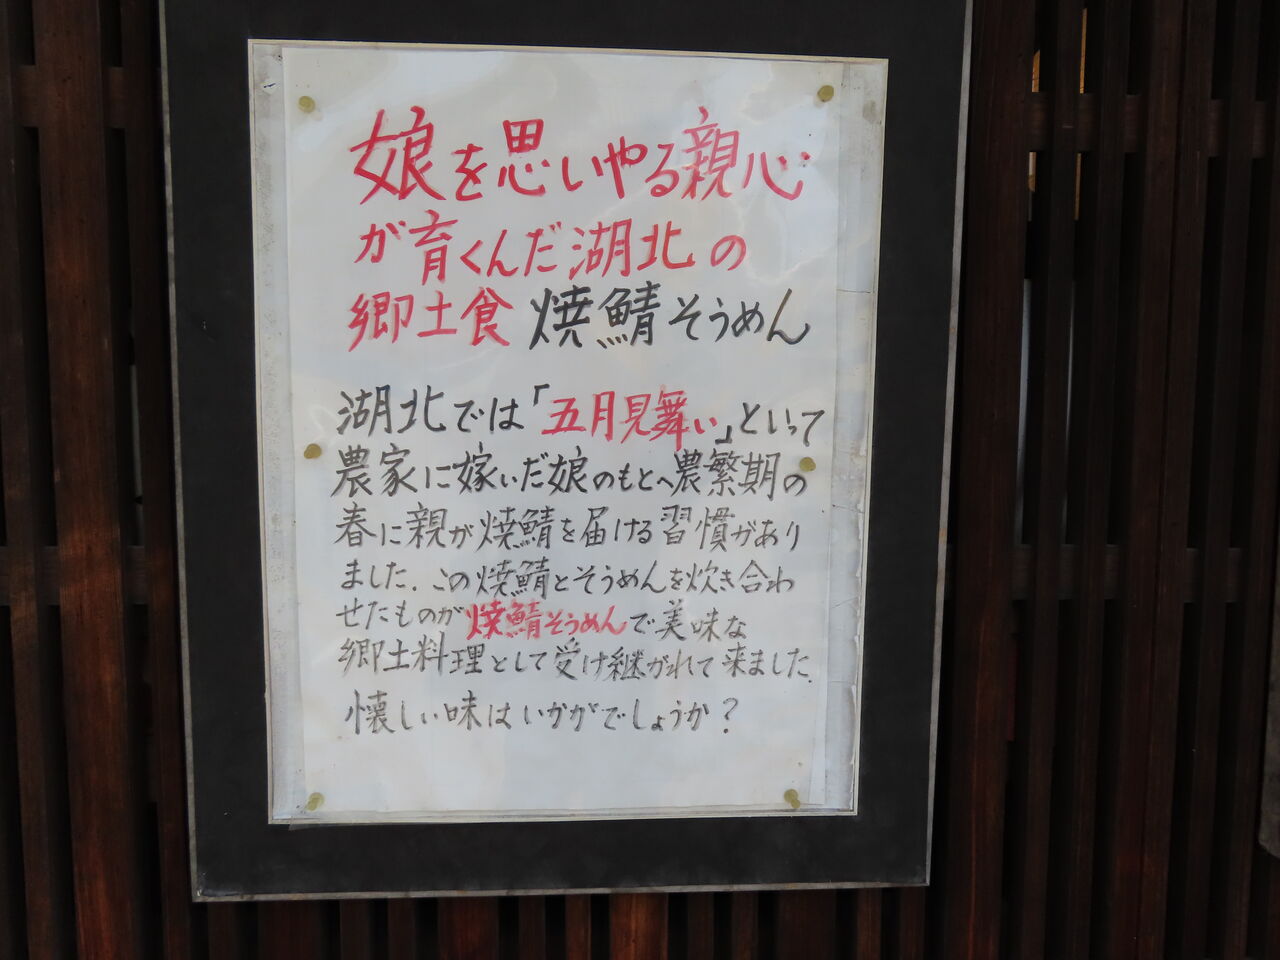 娘を思いやる親心
が育くんだ湖北の
郷土食 焼鯖そうめん
湖北では「五月見舞い」といって
農家に嫁いだ娘のもとへ農繁期の
春に親が焼鯖を届ける習慣があり
ました.この焼鯖とそうめんを炊き合わ
せたものが焼鯖そうめんで美味な
郷土料理として受け継がれて来ました.
懐しい味はいかがでしょうか?